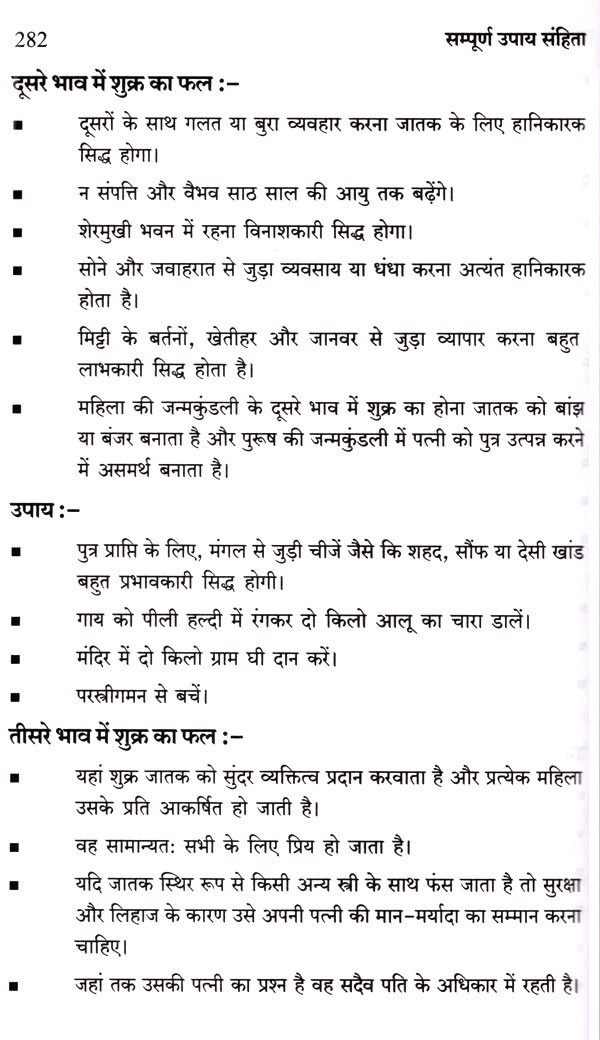 282 सम्पूर्ण उपाय संहिता
दूसरे भाव में शुक्र का फल :–
■ दूसरों के साथ गलत या बुरा व्यवहार करना जातक के लिए हानिकारक
सिद्ध होगा।
■ न संपत्ति और वैभव साठ साल की आयु तक बढ़ेंगे।
■ शेरमुखी भवन में रहना विनाशकारी सिद्ध होगा।
■ सोने और जवाहरात से जुड़ा व्यवसाय या धंधा करना अत्यंत हानिकारक
होता है।
■ मिट्टी के बर्तनों, खेतीहर और जानवर से जुड़ा व्यापार करना बहुत
लाभकारी सिद्ध होता है।
■ महिला की जन्मकुंडली के दूसरे भाव में शुक्र का होना जातक को बांझ
या बंजर बनाता है और पुरूष की जन्मकुंडली में पत्नी को पुत्र उत्पन्न करने
में असमर्थ बनाता है।
उपाय :–
■ पुत्र प्राप्ति के लिए, मंगल से जुड़ी चीजें जैसे कि शहद, सौंफ या देसी खांड
बहुत प्रभावकारी सिद्ध होगी।
■ गाय को पीली हल्दी में रंगकर दो किलो आलू का चारा डालें।
■ मंदिर में दो किलो ग्राम घी दान करें।
■ परस्त्रीगमन से बचें।
तीसरे भाव में शुक्र का फल :–
■ यहां शुक्र जातक को सुंदर व्यक्तित्व प्रदान करवाता है और प्रत्येक महिला
उसके प्रति आकर्षित हो जाती है।
■ वह सामान्यतः सभी के लिए प्रिय हो जाता है।
■ यदि जातक स्थिर रूप से किसी अन्य स्त्री के साथ फंस जाता है तो सुरक्षा
और लिहाज के कारण उसे अपनी पत्नी की मान–मर्यादा का सम्मान करना
चाहिए।
■ जहां तक उसकी पत्नी का प्रश्न है वह सदैव पति के अधिकार में रहती है।